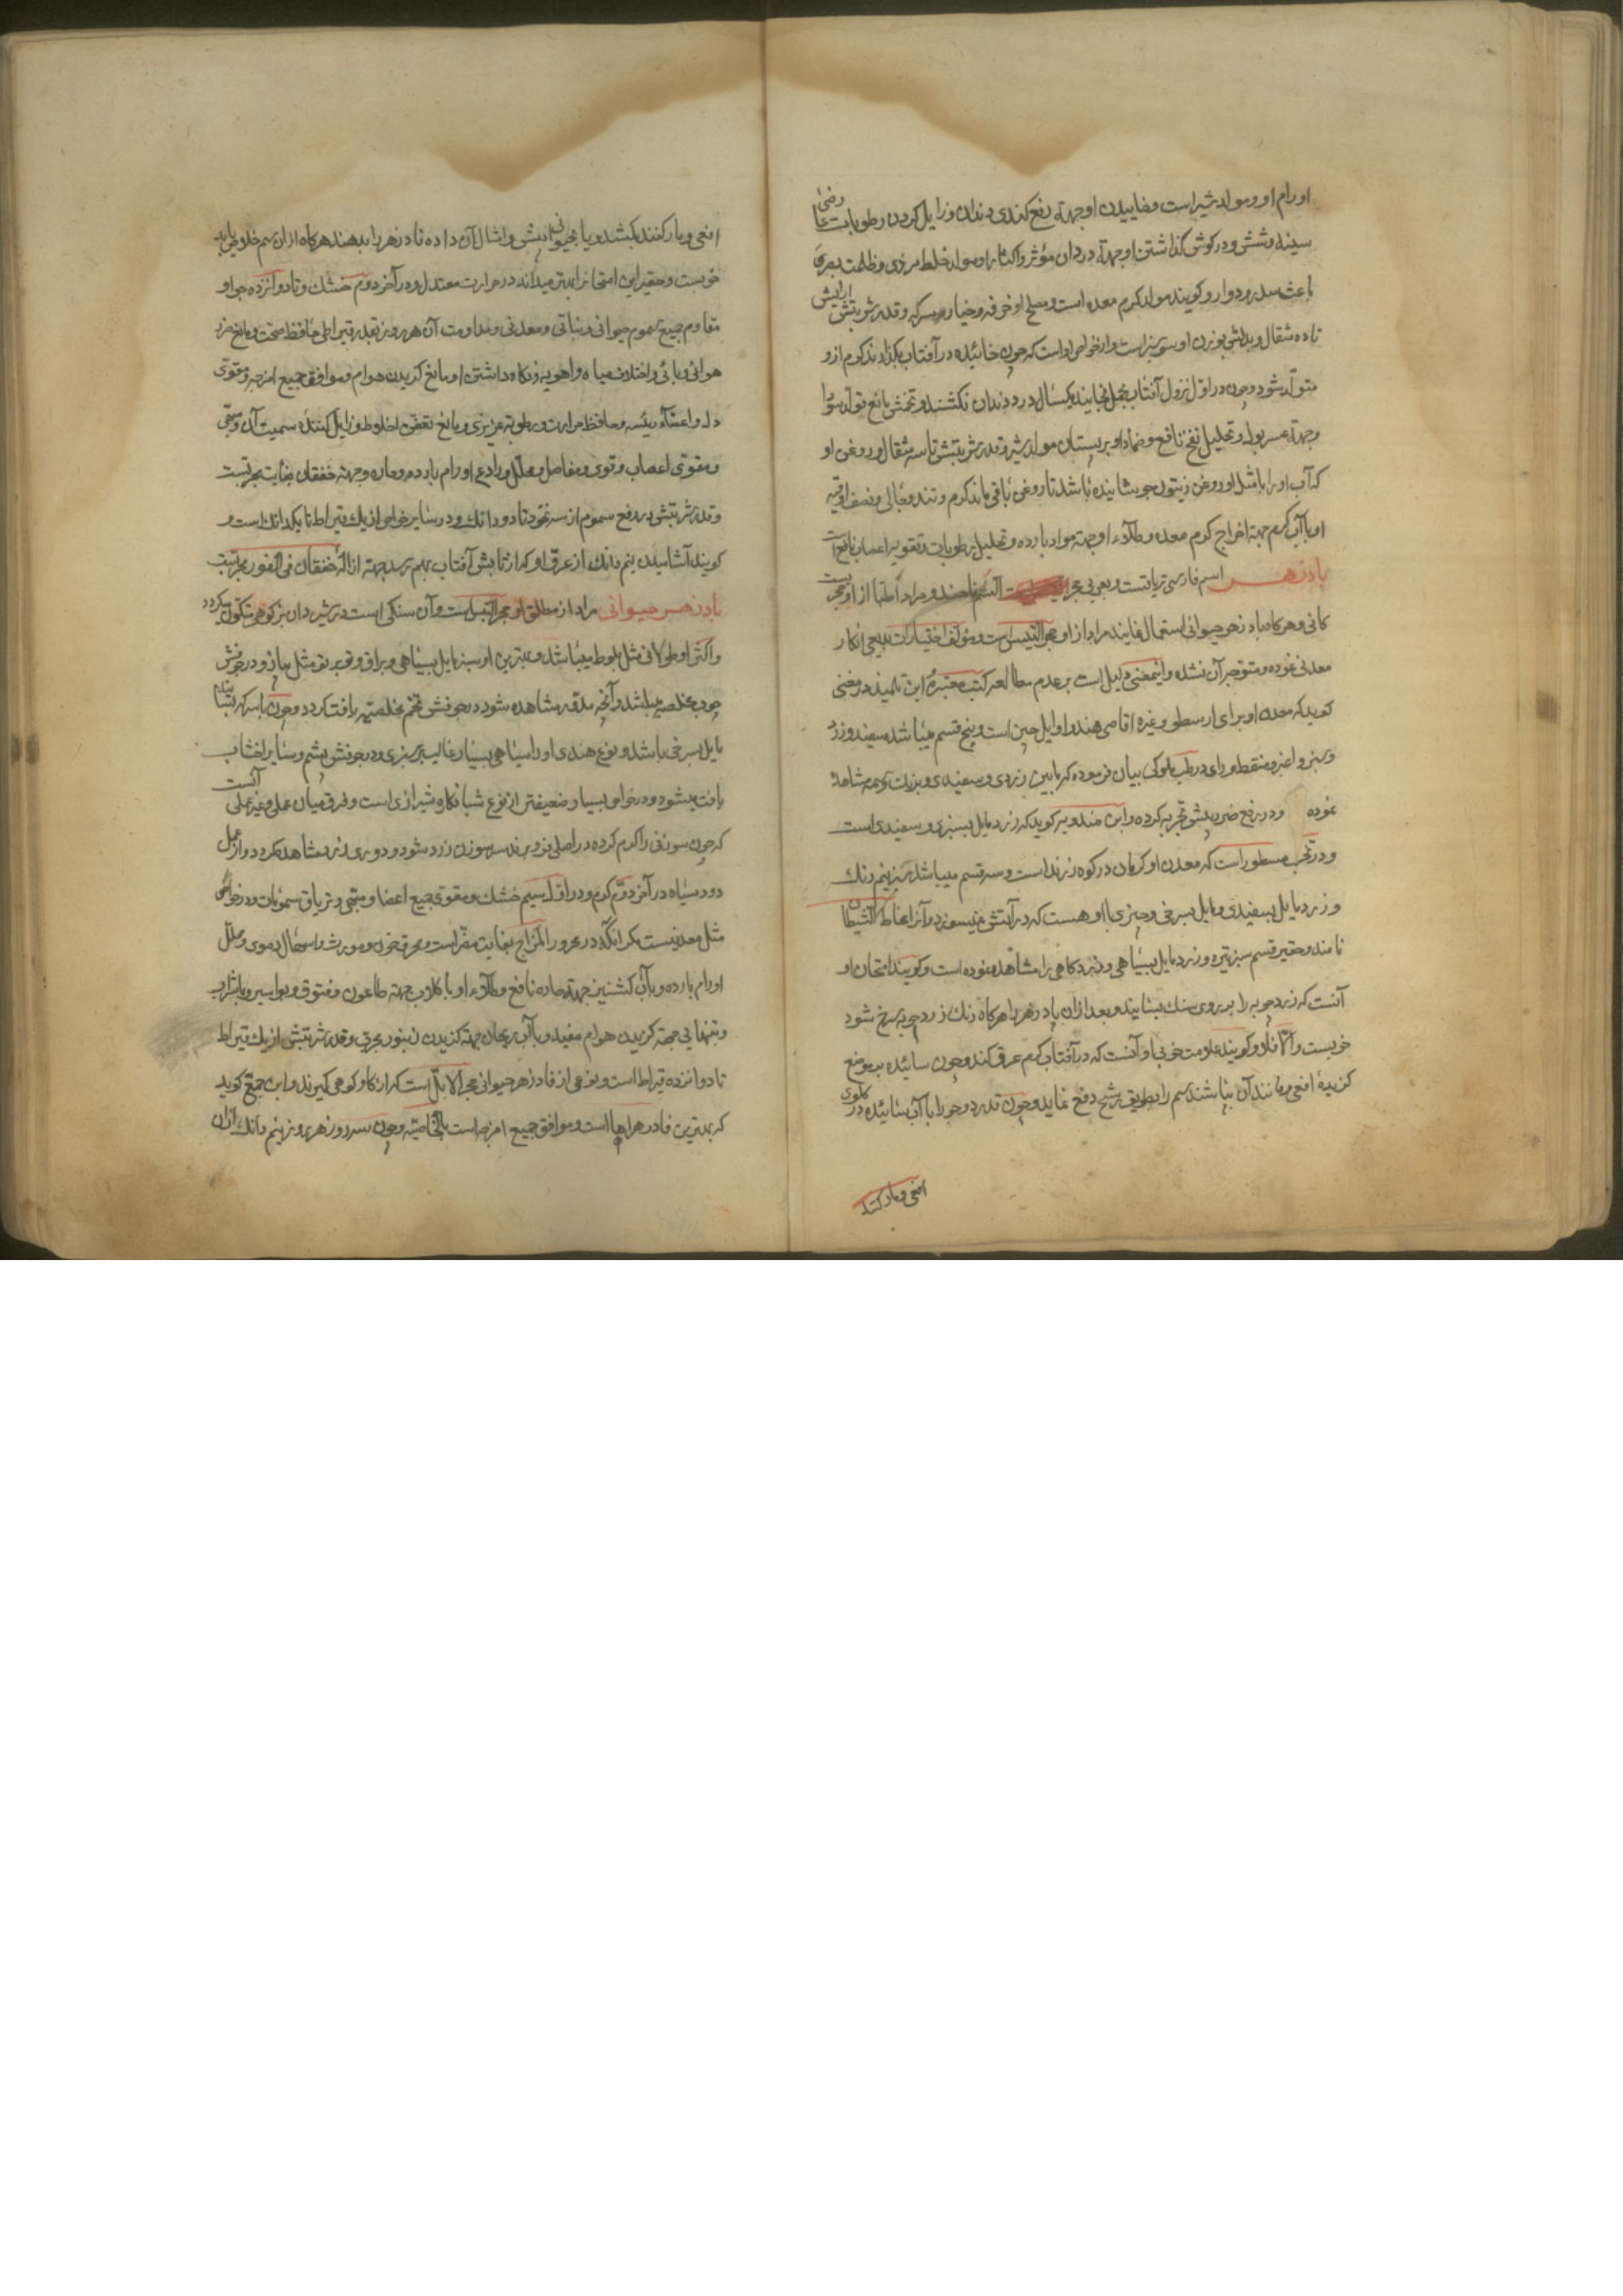 اورام او ومولد شیر است وخاییدن او جهة رفع کندی دندان وزایل کردن رطوبات عارضی
سینه وشش ودر کوش کذاشتن او جهة درد آن مؤثر واکثار او مولد خلط مرّی وظلمت بصر و
باعث سدر ودوار وکویند مولد کرم معده است ومصلح او خرفه وخیار وسرکه وقدر شربتش ازآبش
تا ده مثقال وبدلش بوزن او است واز خواص او است که چون خائیده در آفتاب بکذارند کرم ازو
متولد شود وچون در اول نزول آفتاب بحمل بخایند یکسال درد دندان نکشند وتخمش مانع تولد سودا
وجهة عسر بول وتحلیل نفخ نافع وضماد او بر پستان مولد شیر وقدر شربتش تا سه مثقال وروغن او
که آب او را با مثل او روغن زیتون جوشانیده باشد تا روغن باقی ماند کرم وتند وجالی ونصف اوقیه
او با آب کرم جهة اخراج کرم معده وطلاء او جهة مواد بارده وتحلیل رطوبات وتقویة اعصاب نافع است
پادزهر اسم فارسی تریاقست وبعربی حجر السّم نامند ومراد اطبا از او حجریست
کانی وهرکاه پادزهر حیوانی استعمال نمایند مراد از او حجر التیس است ومؤلف اختیارات بدیعی انکار
معدنی نموده ومتوجه آن نشده واینمعنی دلیل است بر عدم مطالعه کتب معتبره ابن تلمیذ در مغنی
کوید که معدن او برای ارسطو وغیره اقاصی هند واوایل چین است وپنج قسم میباشد سفید وزرد
وسبز واغبر ومنقط ورای در طب ملوکی بیان فرموده که مابین زردی وسفیدی وبزرگ تجربه مشاهده
نموده ودر رفع ضرر بیش تجربه کرده وابن مندویه کوید که زرد مایل بسبزی وسفیدی است
ودر نخب مسطور است که معدن او کرمان در کوه زرند است وسه قسم میباشد سبز نیم رنك
وزرد مایل بسفیدی ومایل بسرخی وچیزی با او هست که در آتش نمیسوزد وآنرا مخاط الشیطان
نامند وحقیر قسم سبز تیره وزرد مایل بسیاهی وزرد کاهی را مشاهده نموده است وکویند امتحان او
آنست که زردچوبه را بر روی سنك بسایند وبعد از آن پادزهر را هرکاه رنك زردچوبه سرخ شود
خوبست والّا فلا وکویند علامت خوبی او آنست که در آفتاب کرم عرق کند وچون سائیده بموضع
کزیدهٔ افعی ومانند آن بپاشند سم را بطریق رشح دفع نماید وچون قدر دو جو را با آب سائیده در کلوی
افعی ومار کنند
افعی ومار کنند بکشد ویا بحیوانی بیش وامثال آن داده فادزهر را بدهند هرکاه از آن سم خلاص یابد
خوبست وحقیر این امتحانرا بهتر میداند در حرارت معتدل ودر آخر دوم خشك وتا دوازده جو او
مقاوم جمیع سموم حیوانی ونباتی ومعدنی ومداومت آن هر روز بقدر قیراطی حافظ صحت ومانع ضرر
هوائی وبائی واختلاف میاه واهویه ونکاه داشتن او مانع کزیدن هوام وموافق جمیع امزجه ومقوی
دل واعضاء رئیسه وحافظ حرارت ورطوبة غریزی ومانع تعفن اخلاط وزایل کنندهٔ سمیت آن ومبهی
ومقوی اعصاب وقوی ومفاصل ومحلل ورادع اورام بارده وحاره وجهة خفقان بغایت مجربست
وقدر شربتش در دفع سموم از سه نخود تا دو دانك ودر سایر خواص از یك قیراط تا یکدانك است و
کویند آشامیدن نیم دانك از عرق او که از تابش آفتاب بهم رسد جهة ازالهٔ خفقان فی الفور مجربست
پادزهر حیوانی مراد از مطلق او حجر التیس است وآن سنکی است در شیردان بز کوهی متکون میکردد
واکثر او طولانی مثل بلوط میباشد وبهترین او سبز مایل بسیاهی وبراق وتوبرتو مثل پیاز ودر جوفش
چوب مخلصه میباشد وآنچه مدور مشاهده شود در جوفش تخم مخلصه یافت کردد وچون با سرکه بسایند
مایل بسرخی باشد ونوع هندی او را سیاهی بسیار غالب بر سبزی ودر جوفش پشم وسایر اخشاب
یافت میشود ودر خواص بسیار ضعیفتر از نوع شبانکاره شیرازی است وفرق میان عملی وغیر عملی آنست
که چون سوزنی را کرم کرده در اصلی فرو برند سر سوزن زرد شود ودودی زرد مشاهده کردد واز عمل
دود سیاه در آخر دوم کرم ودر اول سیم خشك ومقوی جمیع اعضا ومبهی وتریاق سمومات ودر خواص
مثل معدنیست مکر آنکه در محرور المزاج بغایت مضر است ومحرق خون ومورث اسهال دموی ومحلل
اورام بارده وبا آب کشنیز جهة حاره نافع وطلاء او با کلاب جهة طاعون وفتوق وبواسیر وبا شراب
وبتنهایی جهة کزیدن هوام مفید وبا آب ریحان جهة کزیدن زنبور مجرب وقدر شربتش از یك قیراط
تا دوازده قیراط است ونوعی از فادزهر حیوانی حجر الایل است که از کاو کوهی کیرند وابن جمیع کوید
که بهترین فادزهرها است وموافق جمیع امزجه است بالخاصیة وچون سه روز هر روز نیم دانك از آن